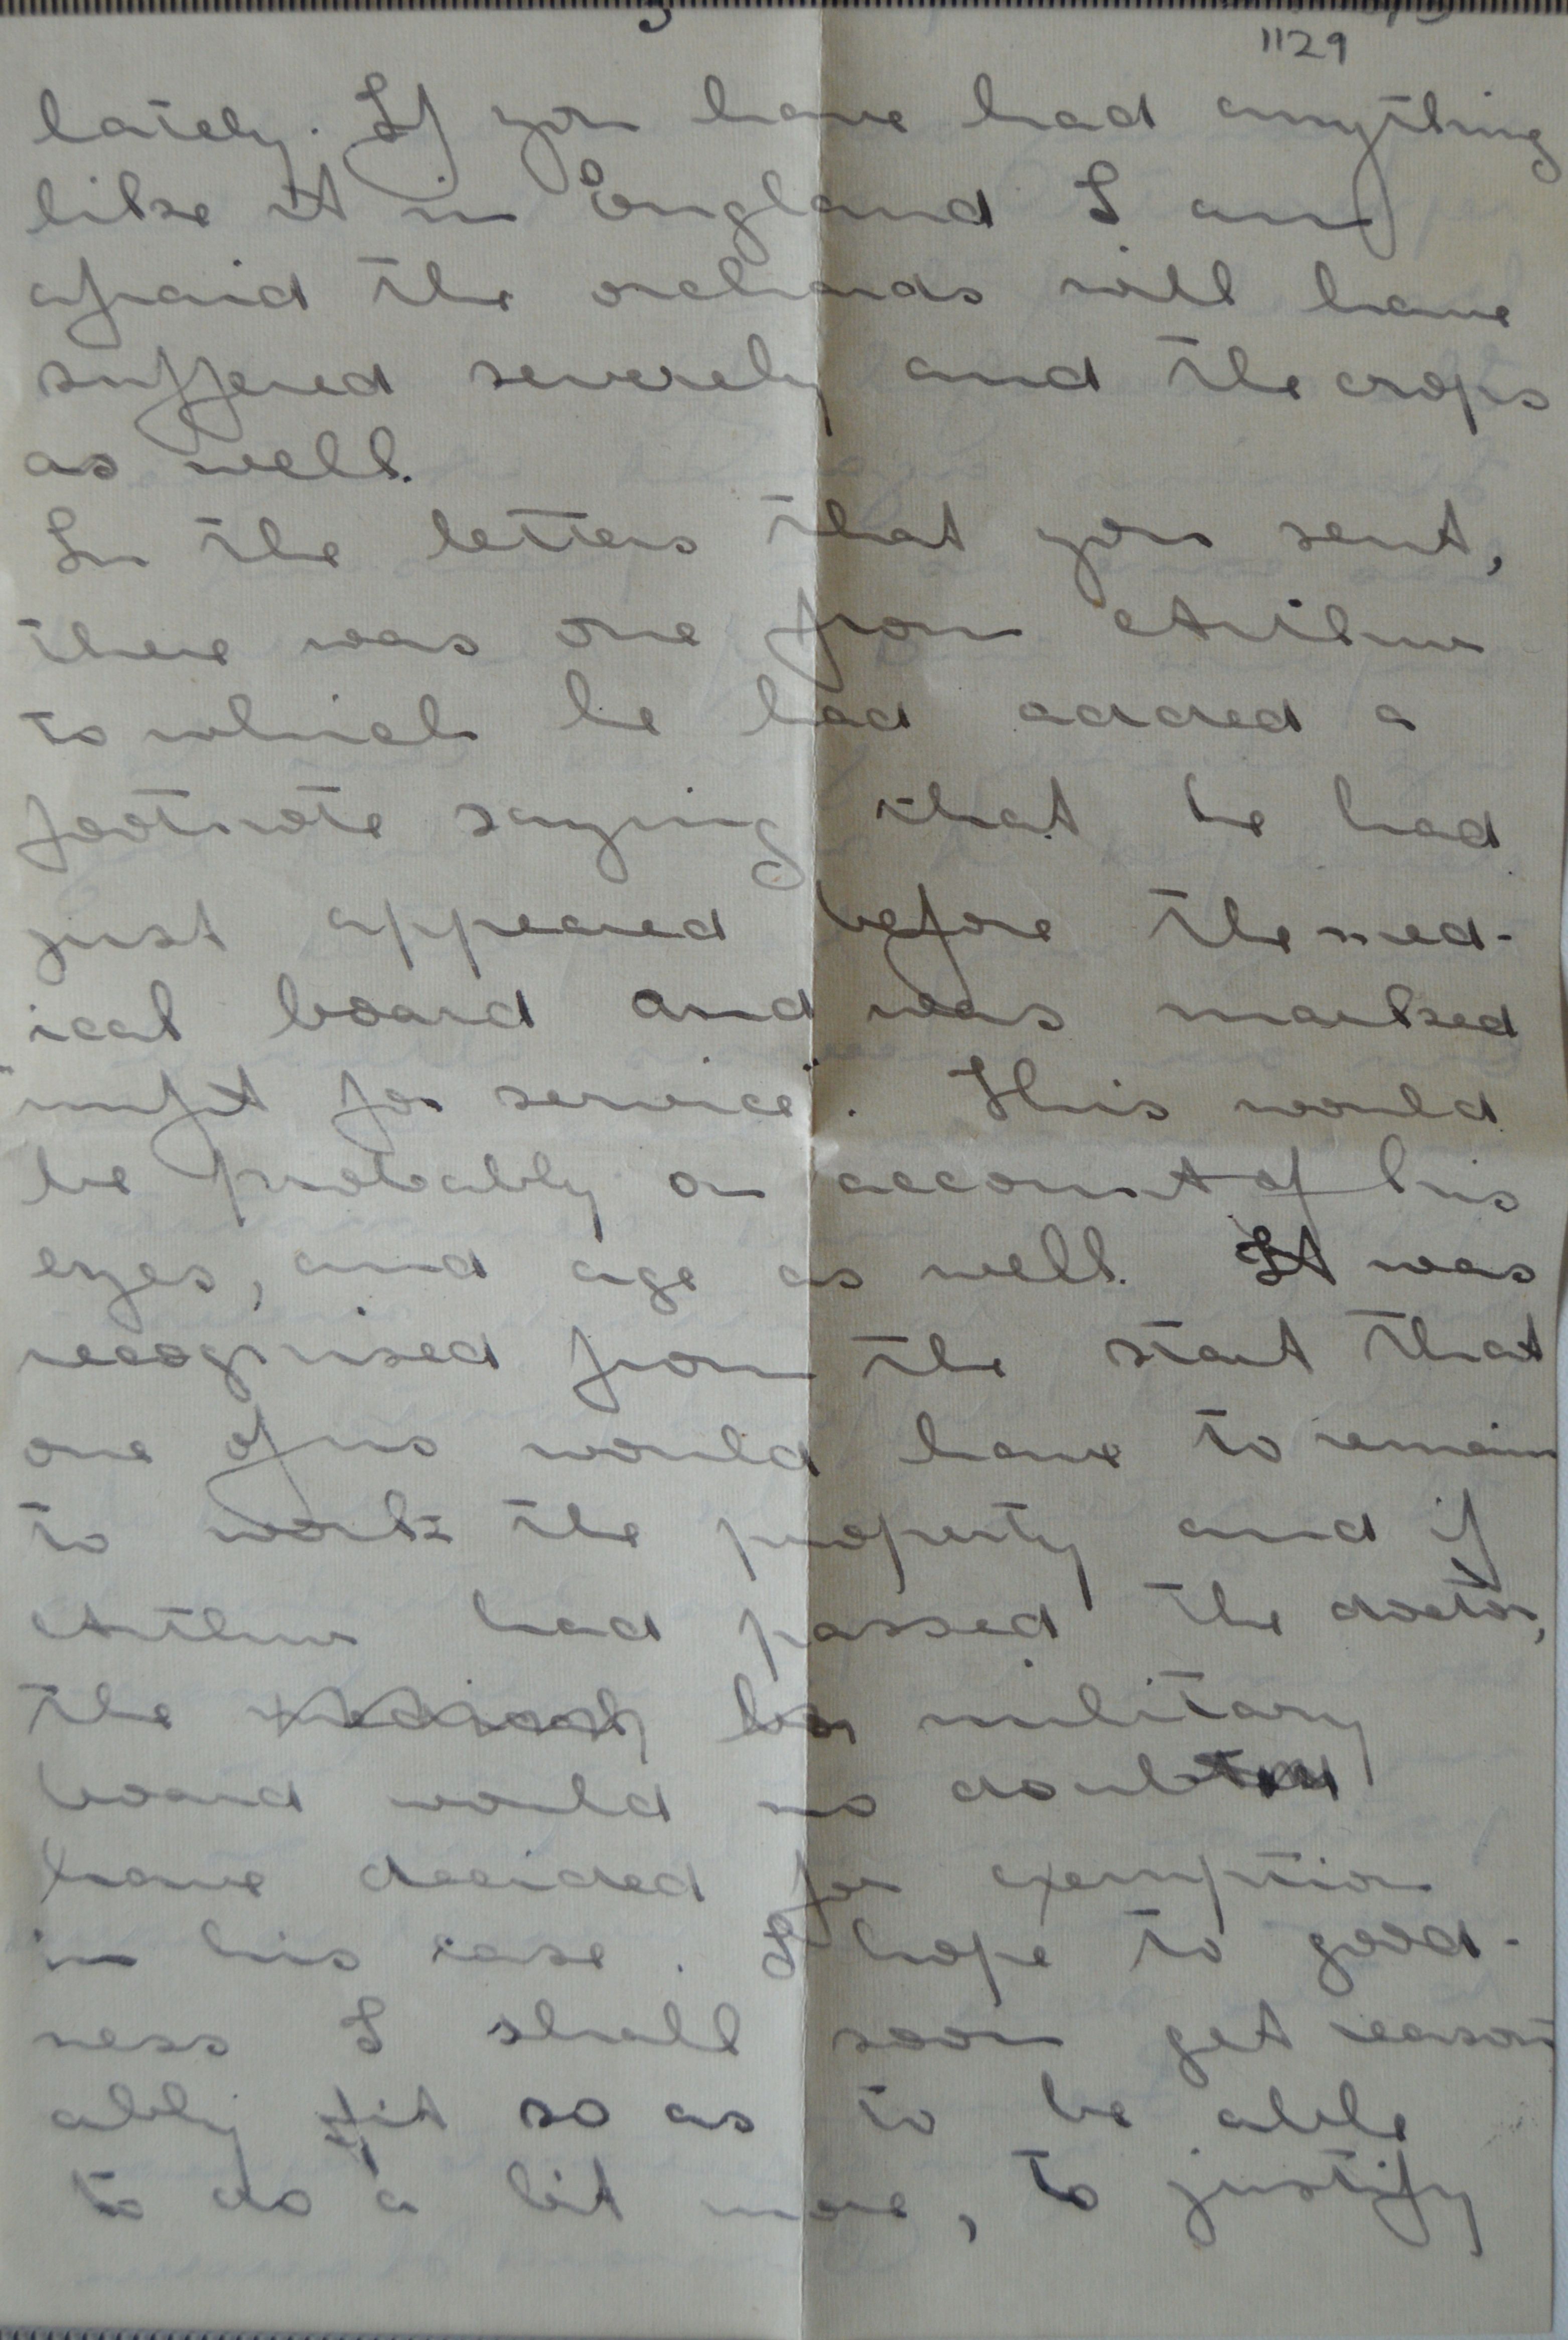 1129
lately. If you have had anything
like it in England I am
afraid the orchards will have
suffered severely and the crops
as well.
In the letters that you sent,
there was one from Arthur
to which he had added a
footnote saying that he had
just appeared before the med-
ical board and was marked
"unfit for service". This would
be probably on account of his
eyes, and age as well. It was
recognised from the start that
one of us would have to remain
to work the property and if
Arthur had passed the doctor,
the military
board would no doubt
have decided for exemption
in his case. I hope to good-
ness I shall soon get reason
ably fit so as to be able
to do a bit more, to justify